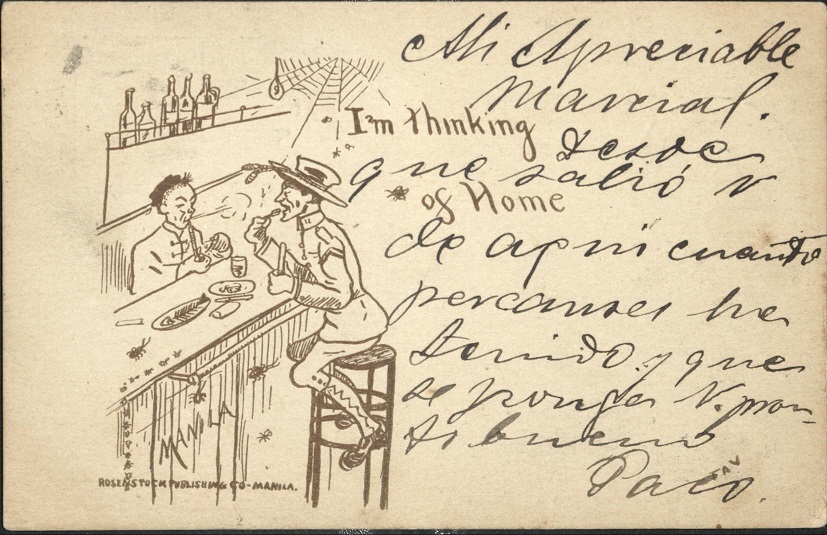 Mi Apreciable
Marcial.
I'm thinking
desde
que salió v
of Home
de aqui cuanto
percanses he
tenido. y que
se ponga V. pron-
to bueno
Paco.
MANILA
ROSENSTOCK PUBLISHING CO-MANILA.